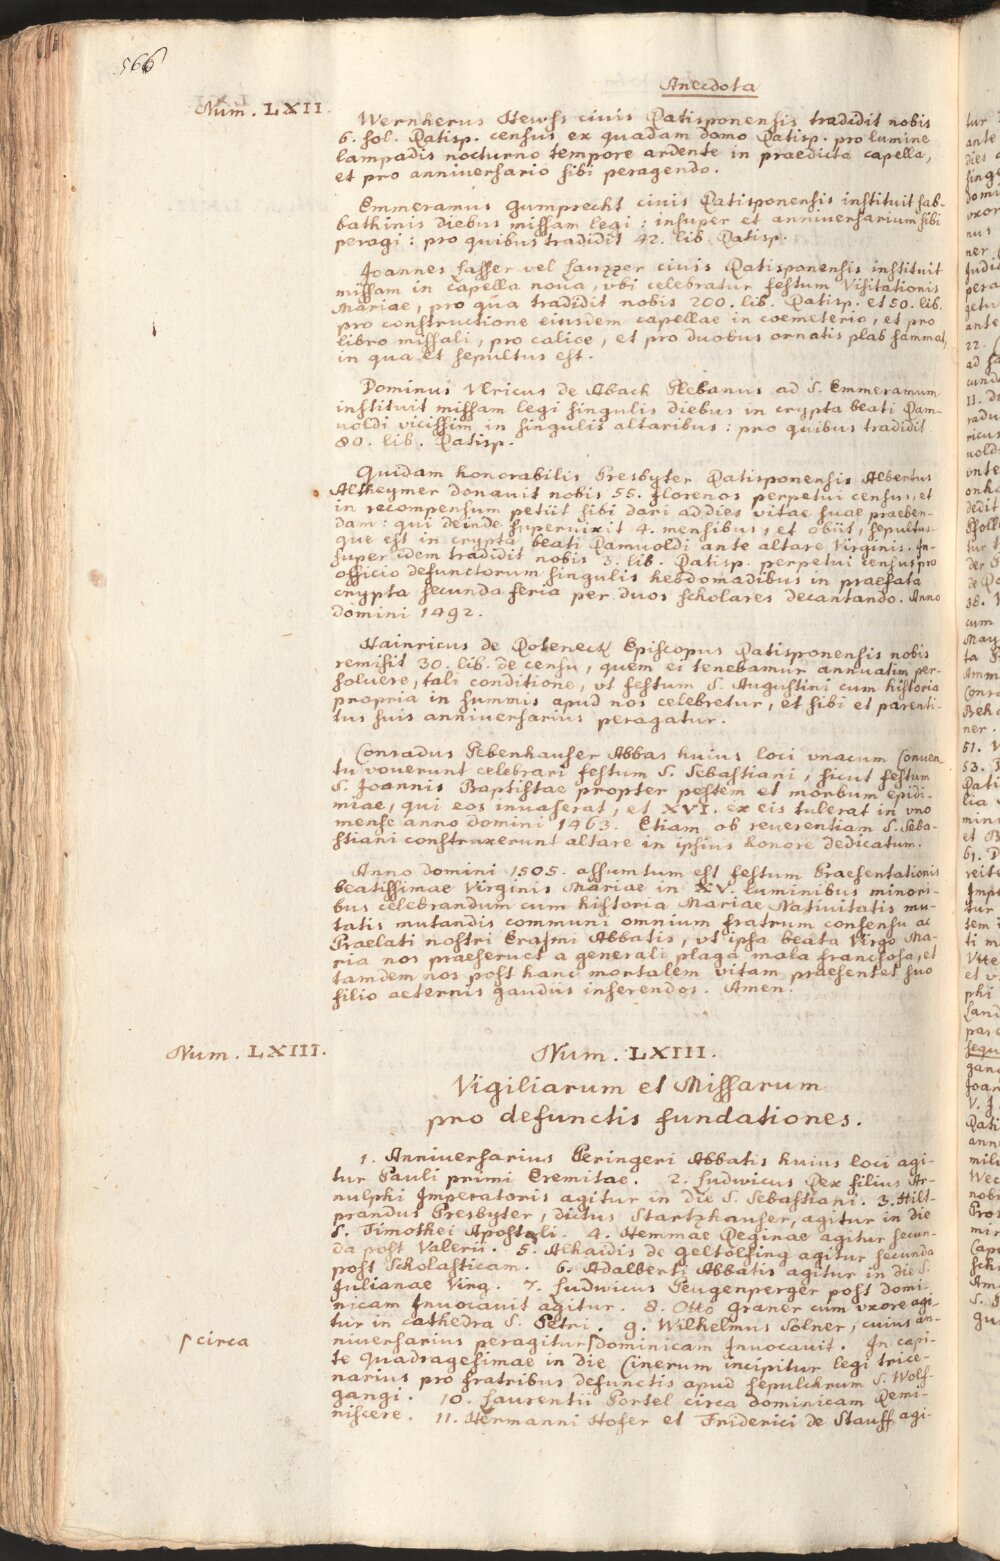 566
Anecdota
Num. LXII.
Wernherus Hewss ciuis Ratisponensis tradidit nobis
6. sol. Ratisp. census ex quadam domo Ratisp. pro lumine
lampadis nocturno tempore ardente in praedicta capella,
et pro anniuersario sibi peragendo.
Emmeramus Gumprecht ciuis Ratisponensis instituit sab-
bathinis diebus missam legi: insuper et anniuersarium sibi
peragi: pro quibus tradidit 42. lib. Ratisp.
Joannes ciuis Ratisponensis instituit
missam in capella noua, vbi celebratur festum Visitationis
Mariae, pro qua tradidit nobis 200. lib. Ratisp. et 50. lib.
pro constructione eiusdem capellae in coemeterio, et pro
libro missali, pro calice, et pro duobus ornatis plab sammet,
in qua et sepultus est.
Dominus Vlricus de Abach Plebanus ad S. Emmeramum
instituit missam legi singulis diebus in crypta beati Ram-
uoldi vicissim in singulis altaribus: pro quibus tradidit
80. lib. Ratisp.
Quidam honorabilis Presbyter Ratisponensis Albertus
Altheymer donauit nobis 55. florenos perpetui census, et
in recompensum petiit sibi dari ad dies vitae suae praeben-
dam: qui deinde superuixit 4. mensibus, et obiit, sepultus-
que est in crypta beati Ramuoldi ante altare Virginis. In-
super idem tradidit nobis 3. lib. Ratisp. perpetui census pro
officio defunctorum singulis hebdomadibus in praefata
crypta secunda feria per duos scholares decantando. Anno
domini 1492.
Hainricus de Roteneck Episcopus Ratisponensis nobis
remisit 30. lib. de censu, quem ei tenebamur annuatim per-
soluere, tali conditione, vt festum S. Augustini cum historia
propria in summis apud nos celebretur, et sibi et parenti-
tus suis anniuersarius peragatur.
Conradus Pebenhauser Abbas huius loci vnacum Conuen-
tu vouerunt celebrari festum S. Sebastiani, sicut festum
S. Joannis Baptistae propter pestem et morbum epidi-
miae, qui eos inuaserat, et XVI. ex eis tulerat in vno
mense anno domini 1463. Etiam ob reuerentiam S. Seba-
stiani construxerunt altare in ipsius honore dedicatum.
Anno domini 1505. assumtum est festum Praesentationis
beatissimae Virginis Mariae in XV. luminibus minori-
bus celebrandum cum historia Mariae Nativitatis mu-
tatis mutandis communi omnium fratrum consensu ac
Praelati nostri Erasmi Abbatis, vt ipsa beata Virgo Ma-
ria nos praeseruet a generali plaga mala francsosa, et
tamdem nos post hanc mortalem vitam praesentet suo
filio aeternis gaudiis inserendos. Amen.
Num. LXIII.
Num. LXIII.
Vigiliarum et Missarum
pro defunctis fundationes.
1. Anniuersarius Peringeri Abbatis huius loci agi-
tur Pauli primi Eremitae. 2. Ludwicus Rex filius Ar-
nulphi Imperatoris agitur in die S. Sebastiani. 3. Hilt-
prandus Presbyter, dictus Startzhauser, agitur in die
S. Timothei Apostoli. 4. Hemmae Reginae agitur secun-
da post Valerii. 5. Alhaidis de Geltolfing agitur secunda
post Scholasticam. 6. Adalberti Abbatis agitur in die S.
Julianae Virg. 7. Ludwicus Peugenperger post domi-
nicam Inuocauit agitur. 8. Otto Graner cum vxore agi-
tur in cathedra S. Petri. 9. Wilhelmus Solner, cuius an-
niuersarius peragitur ſdominicam Inuocauit. In capi-
ſ circa
te Quadragesimae in die Cinerum incipitur legi trice-
narius pro fratribus defunctis apud sepulchrum S. Wolf-
gangi. 10. Laurentii Portel circa dominicam Remi-
niscere. 11. Hermanni Hofer et Friderici de Stauff agi-